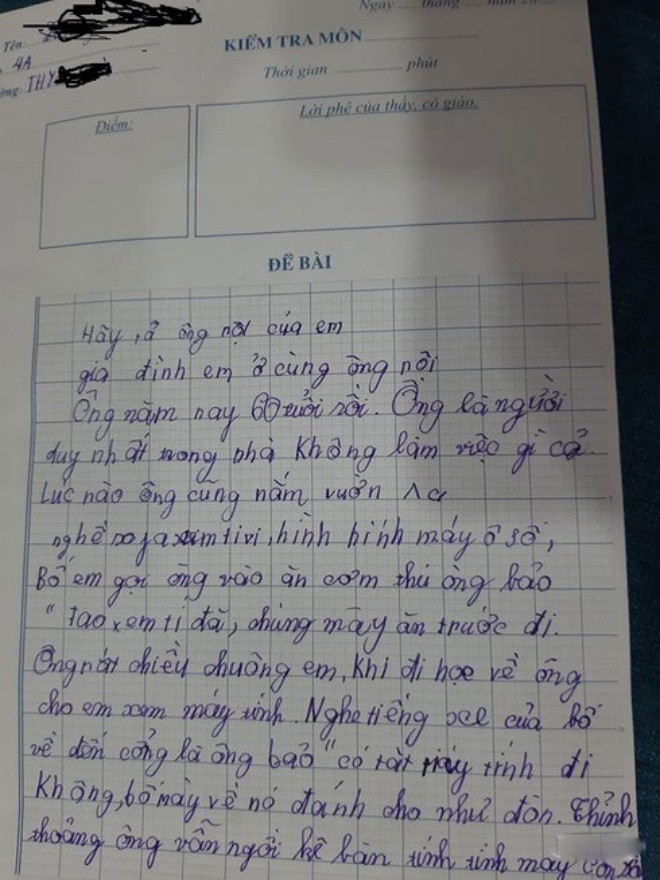 Ngày ... tháng ... năm 20...
Tên:
4A
THY
KIỂM TRA MÔN
Thời gian phút
Điểm:
Lời phê của thầy, cô giáo.
ĐỀ BÀI
Hãy tả ông nội của em
gia đình em ở cùng ông nội
Ông năm nay 60 tuổi rồi. Ông là người
duy nhất trong nhà không làm việc gì cả.
Lúc nào ông cũng nằm vườn
xem tivi, hình hính máy ô số,
Bố em gọi ông vào ăn cơm thì ông bảo
"Tao xem tí đã, chúng mày ăn trước đi.
Ông rất chiều chuông em, khi đi học về ông
cho em xem máy tính. Nghe tiếng xe của bố
về đến cổng là ông bảo "có tắt máy tính đi
không, bố mày về nó đánh cho như đòn. Thỉnh
thoảng ông vẫn ngồi kê bàn tính tính máy con